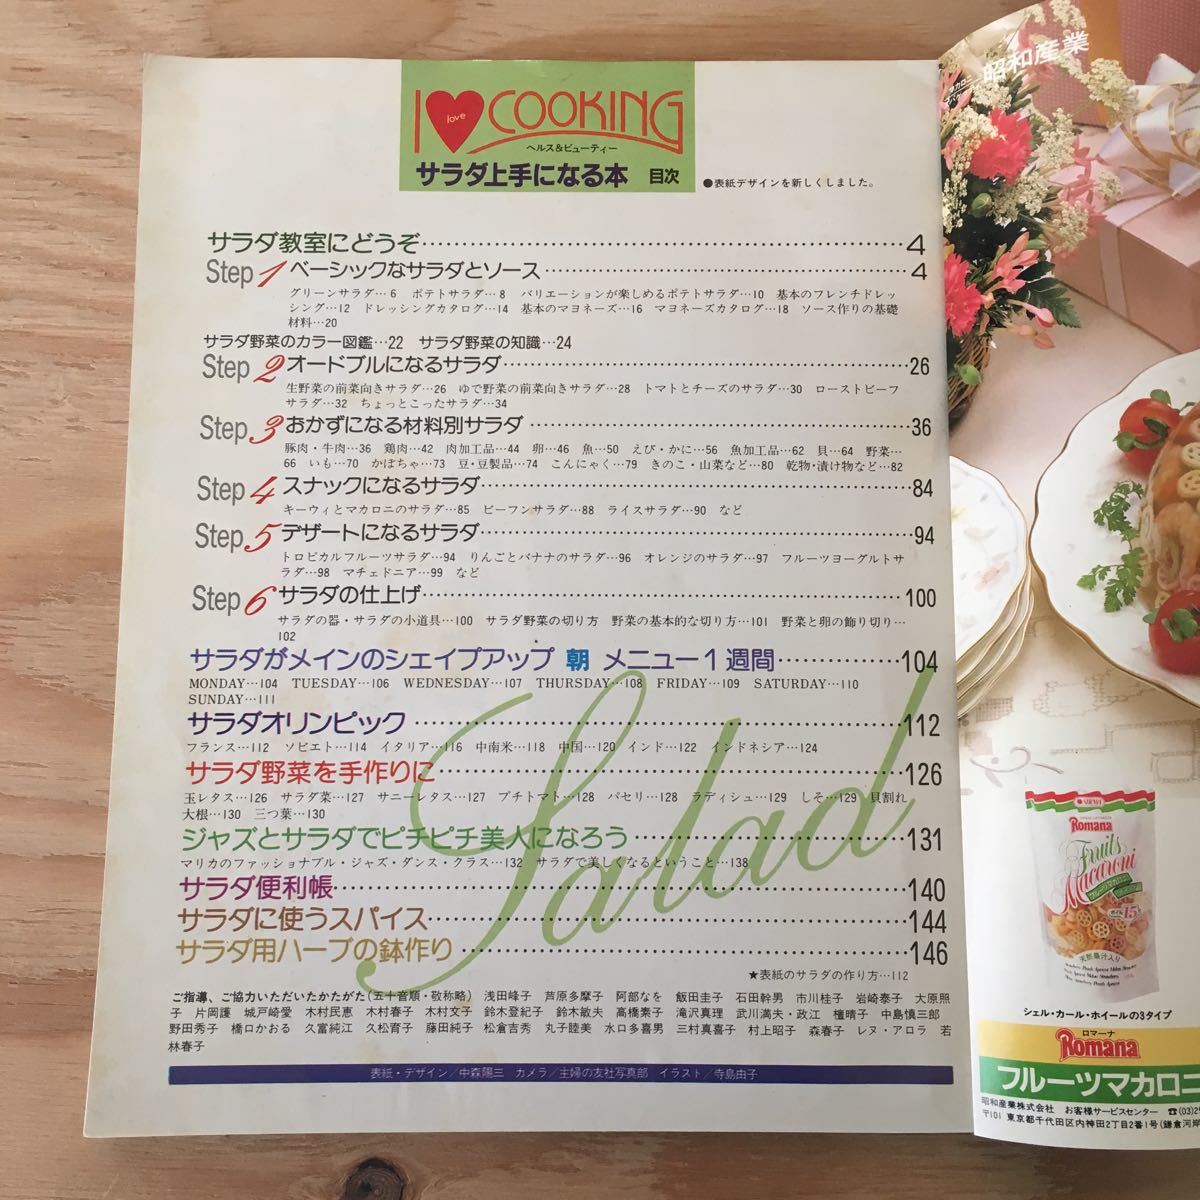 I love COOKING
ヘルス&ビューティー
サラダ上手になる本 目次
●表紙デザインを新しくしました。
サラダ教室にどうぞ……4
Step 1 ベーシックなサラダとソース……4
グリーンサラダ…6 ポテトサラダ…8 バリエーションが楽しめるポテトサラダ…10 基本のフレンチドレッ
シング…12 ドレッシングカタログ…14 基本のマヨネーズ…16 マヨネーズカタログ…18 ソース作りの基礎
材料…20
サラダ野菜のカラー図鑑…22 サラダ野菜の知識…24
Step 2 オードブルになるサラダ……26
生野菜の前菜向きサラダ…26 ゆで野菜の前菜向きサラダ…28 トマトとチーズのサラダ…30 ローストビーフ
サラダ…32 ちょっとこったサラダ…34
Step 3 おかずになる材料別サラダ……36
豚肉・牛肉…36 鶏肉…42 肉加工品…44 卵…46 魚…50 えび・かに…56 魚加工品…62 貝…64 野菜…
66 いも…70 かぼちゃ…73 豆・豆製品…74 こんにゃく…79 きのこ・山菜など…80 乾物・漬け物など…82
Step 4 スナックになるサラダ……84
キーウィとマカロニのサラダ…85 ビーフンサラダ…88 ライスサラダ…90 など
Step 5 デザートになるサラダ……94
トロピカルフルーツサラダ…94 りんごとバナナのサラダ…96 オレンジのサラダ…97 フルーツヨーグルトサ
ラダ…98 マチェドニア…99 など
Step 6 サラダの仕上げ……100
サラダの器・サラダの小道具…100 サラダ野菜の切り方 野菜の基本的な切り方…101 野菜と卵の飾り切り…
102
サラダがメインのシェイプアップ 朝 メニュー1週間……104
MONDAY…104 TUESDAY…106 WEDNESDAY…107 THURSDAY…108 FRIDAY…109 SATURDAY…110
SUNDAY…111
サラダオリンピック……112
フランス…112 ソビエト…114 イタリア…116 中南米…118 中国…120 インド…122 インドネシア…124
サラダ野菜を手作りに……126
玉レタス…126 サラダ菜…127 サニーレタス…127 プチトマト…128 パセリ…128 ラディシュ…129 しそ…129 貝割れ
大根…130 三つ葉…130
ジャズとサラダでピチピチ美人になろう……131
マリカのファッショナブル・ジャズ・ダンス・クラス…132 サラダで美しくなるということ…138
サラダ便利帳……140
サラダに使うスパイス……144
サラダ用ハーブの鉢作り……146
Salad
★表紙のサラダの作り方…112
ご指導、ご協力いただいたかたがた(五十音順・敬称略) 浅田峰子 芦原多摩子 阿部なを 飯田圭子 石田幹男 市川桂子 岩崎泰子 大原照
子 片岡護 城戸崎愛 木村民恵 木村春子 木村文子 鈴木登紀子 鈴木敏夫 高橋素子 滝沢真理 武川満夫・政江 檀晴子 中島慎三郎
野田秀子 橋口かおる 久富純江 久松育子 藤田純子 松倉吉秀 丸子睦美 水口多喜男 三村真喜子 村上昭子 森春子 レヌ・アロラ 若
林春子
表紙・デザイン/中森陽三 カメラ/主婦の友社写真部 イラスト/寺島由子
昭和産業
SHOWA
Romana
Fruits Macaroni
フルーツマカロニ
天然果汁入り
シェル・カール・ホイールの3タイプ
ロマーナ
Romana
フルーツマカロニ
昭和産業株式会社 お客様サービスセンター ☎(03)
〒101 東京都千代田区内神田2丁目2番1号(鎌倉河岸